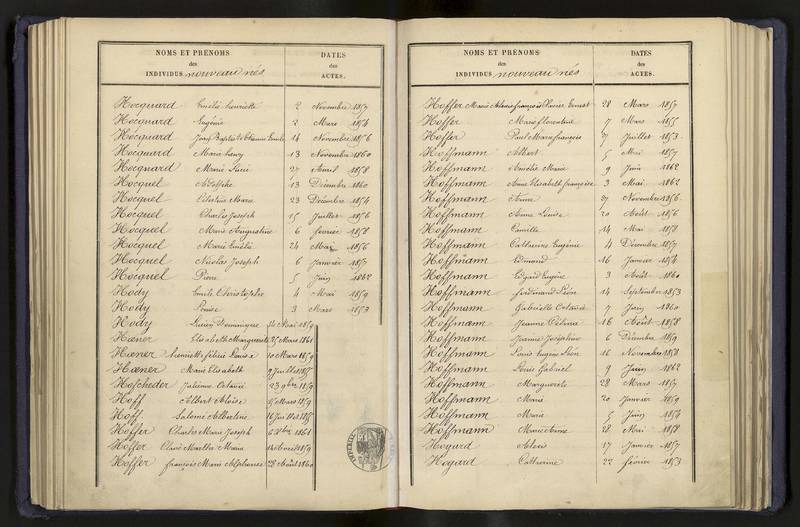 NOMS ET PRÉNOMS
des
INDIVIDUS nouveau nés
DATES
des
ACTES.
Hocquard Emélie Henriette 2 Novembre 1857
Hocquard Eugénie 2 Mars 1854
Hocquard Joseph Baptiste Etienne Emile 14 Novembre 1856
Hocquard Marie 13 Novembre 1860
Hocquard Marie 27 Avril 1858
Hocquel Adolphe 13 Décembre 1860
Hocquel Célestine Marie 23 Décembre 1854
Hocquel Charles Joseph 15 Juillet 1856
Hocquel Marie Augustine 6 février 1858
Hocquel Marie Emélie 24 Mai 1856
Hocquel Nicolas Joseph 6 Janvier 1857
Hocquel Pierre 5 Juin 1862
Hody Emile Christophe 4 Mai 1859
Hody Louise 3 Mars 1853
Hody Lucien Dominique 14 Mai 1859
Hœner Elisabeth Marguerite 25 Mars 1861
Hœner Henriette félicie Louise 10 Mars 1859
Hœner Marie Elisabeth 9 Juillet 1857
Hofcheder Julienne Octavie 23 9bre 1859
Hoff Albert Aloïse Mars 1859
Hoff. Salomé Albertine 16 Juillet 1855
Hoffer Charles Marie Joseph 6 Xbre 1861
Hoffer Marthe Marie 1859
Hoffer françois Marie Alphonse 28 Août 1860
NOMS ET PRÉNOMS
des
INDIVIDUS nouveau nés
DATES
des
ACTES.
Hoffer Marie Antoine françois Xavier Ernest 28 Mars 1857
Hoffer Marie florentine 7 Mars 1855
Hoffer Paul Marie françois 27 Juillet 1853
Hoffmann Albert 5 Mai 1857
Hoffmann Amélie Marie 9 Juin 1862
Hoffmann Anne Elisabeth françoise 3 Mai 1862
Hoffmann Anne 27 Novembre 1856
Hoffmann Anne Louise 20 Août 1856
Hoffmann Camille 14 Mai 1858
Hoffmann Catherine Eugénie 4 Décembre 1857
Hoffmann Edmond 16 Janvier 1854
Hoffmann Edgard Eugène 3 Août 1860
Hoffmann ferdinand Léon 14 Septembre 1853
Hoffmann Gabrielle Octavie 7 Juin 1860
Hoffmann Jeanne Célina 16 Août 1858
Hoffmann Jeanne Joséphine 6 Décembre 1859
Hoffmann Louis Eugène Léon 16 Novembre 1858
Hoffmann Louis Gabriel 9 Juin 1862
Hoffmann Marguerite 28 Mars 1857
Hoffmann Marie 20 Janvier 1859
Hoffmann Marie 5 Juin 1854
Hoffmann Marie Anne 28 Mai 1858
Hogard 17 Janvier 1857
Hogard Catherine 22 février 1853